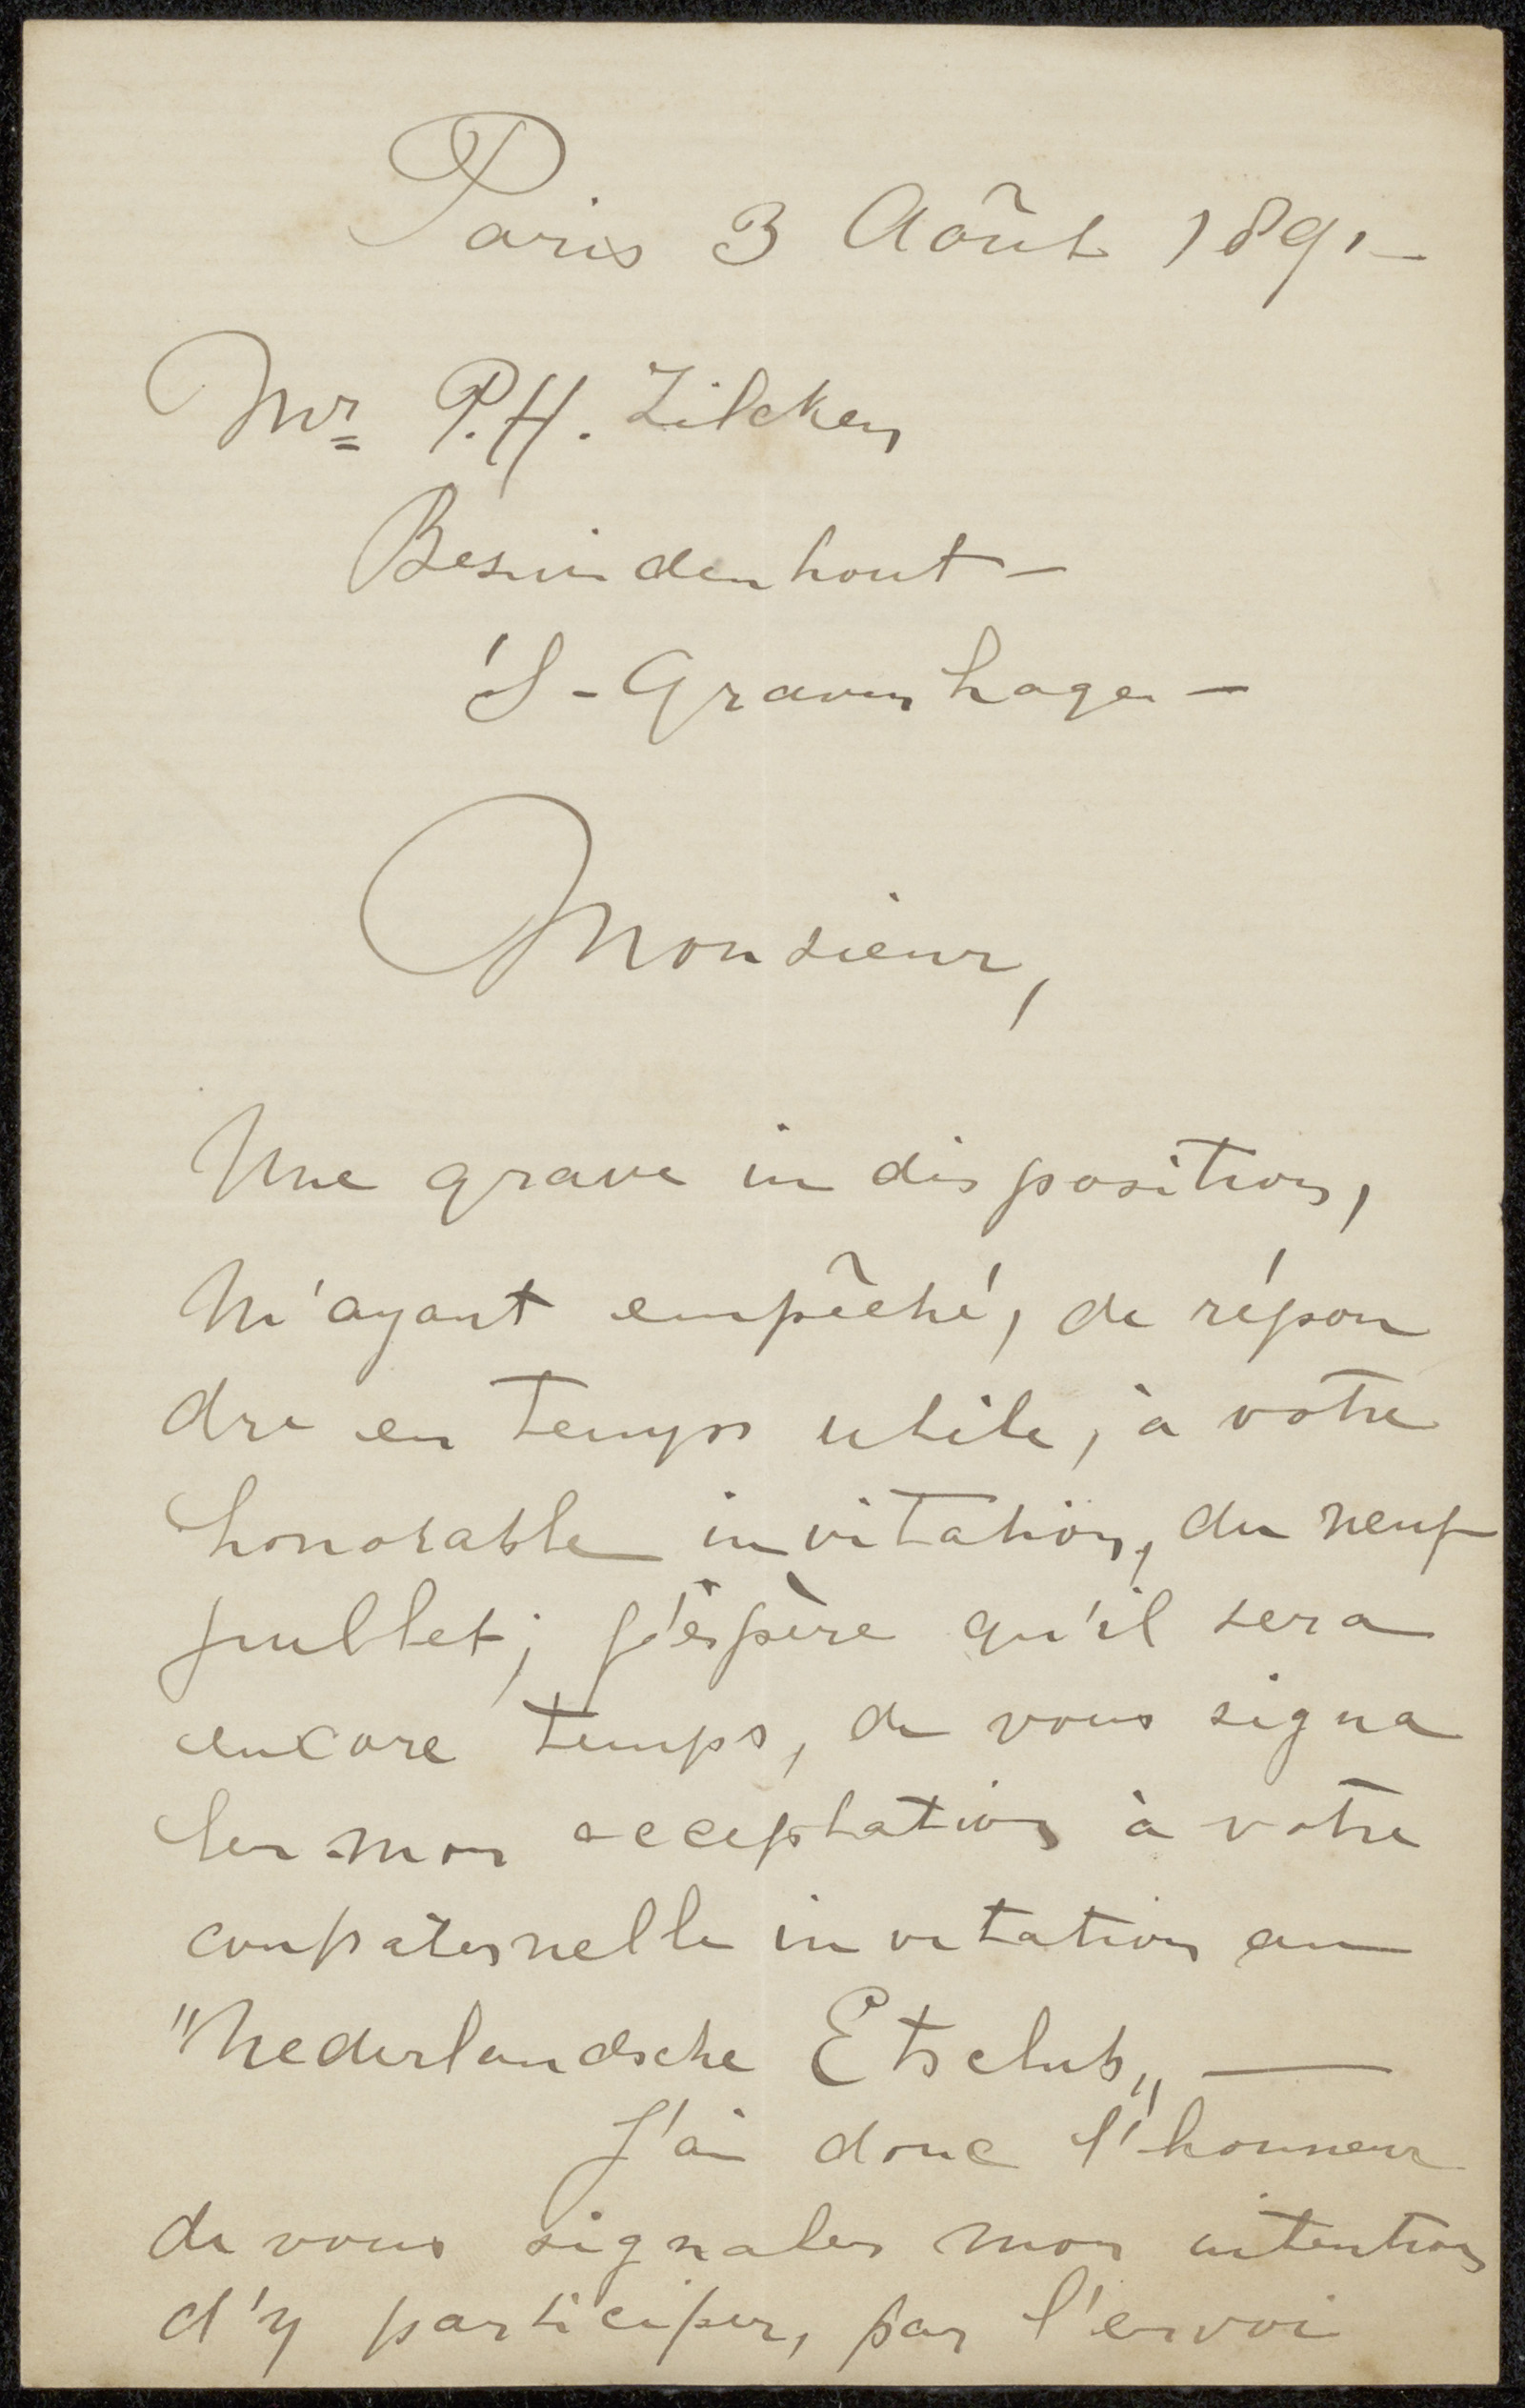 Paris 3 Août 1891 -
Mr P.H. Zilcken
Besuidenhout -
'S-Gravenhage -
Monsieur,
Une grave indisposition,
M'ayant empêché, de répon
dre en temps utile, à votre
honorable invitation, du neuf
juillet; j'éspère qu'il sera
encore temps, de vous signa
ler mon acceptation à votre
confraternelle invitation au
"Nederlandsche Etsclub„ —
J'ai donc l'honneur
de vous signaler mon intention
d'y participer, par l'envoi